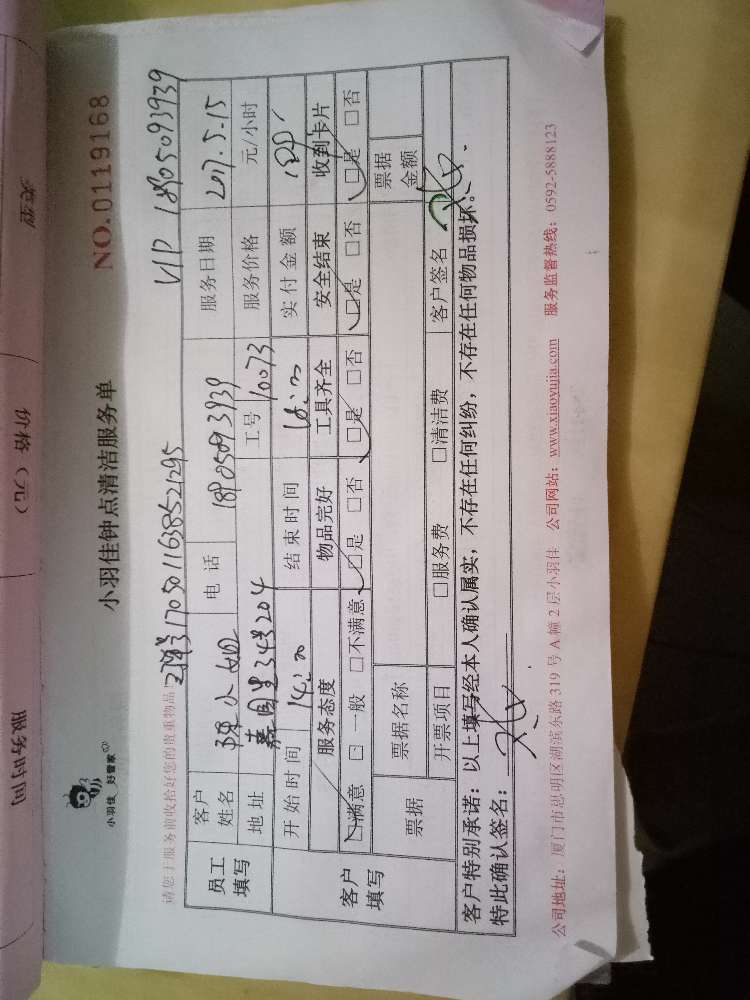 类型
价格（元）
服务时间
小羽佳 好管家
小羽佳钟点清洁服务单
NO.0119168
请您于服务前收拾好您的贵重物品
1705011638521295
VIP 18905093939
员工填写
客户姓名
小姐
电话
18905093939
服务日期
2017.5.15
地址
34号204
工号
10073
服务价格
元/小时
客户填写
开始时间
14:00
结束时间
18:00
实付金额
服务态度
物品完好
工具齐全
安全结束
收到卡片
☑满意 □一般 □不满意
☑是 □否
☑是 □否
☑是 □否
☑是 □否
票据
票据名称
票据金额
开票项目
□服务费
□清洁费
客户签名
客户特别承诺：以上填写经本人确认属实，不存在任何纠纷，不存在任何物品损坏。
特此确认签名：
公司地址：厦门市思明区湖滨东路 319 号 A 幢 2 层小羽佳 公司网站：www.xiaoyujia.com 服务监督热线：0592-5888123